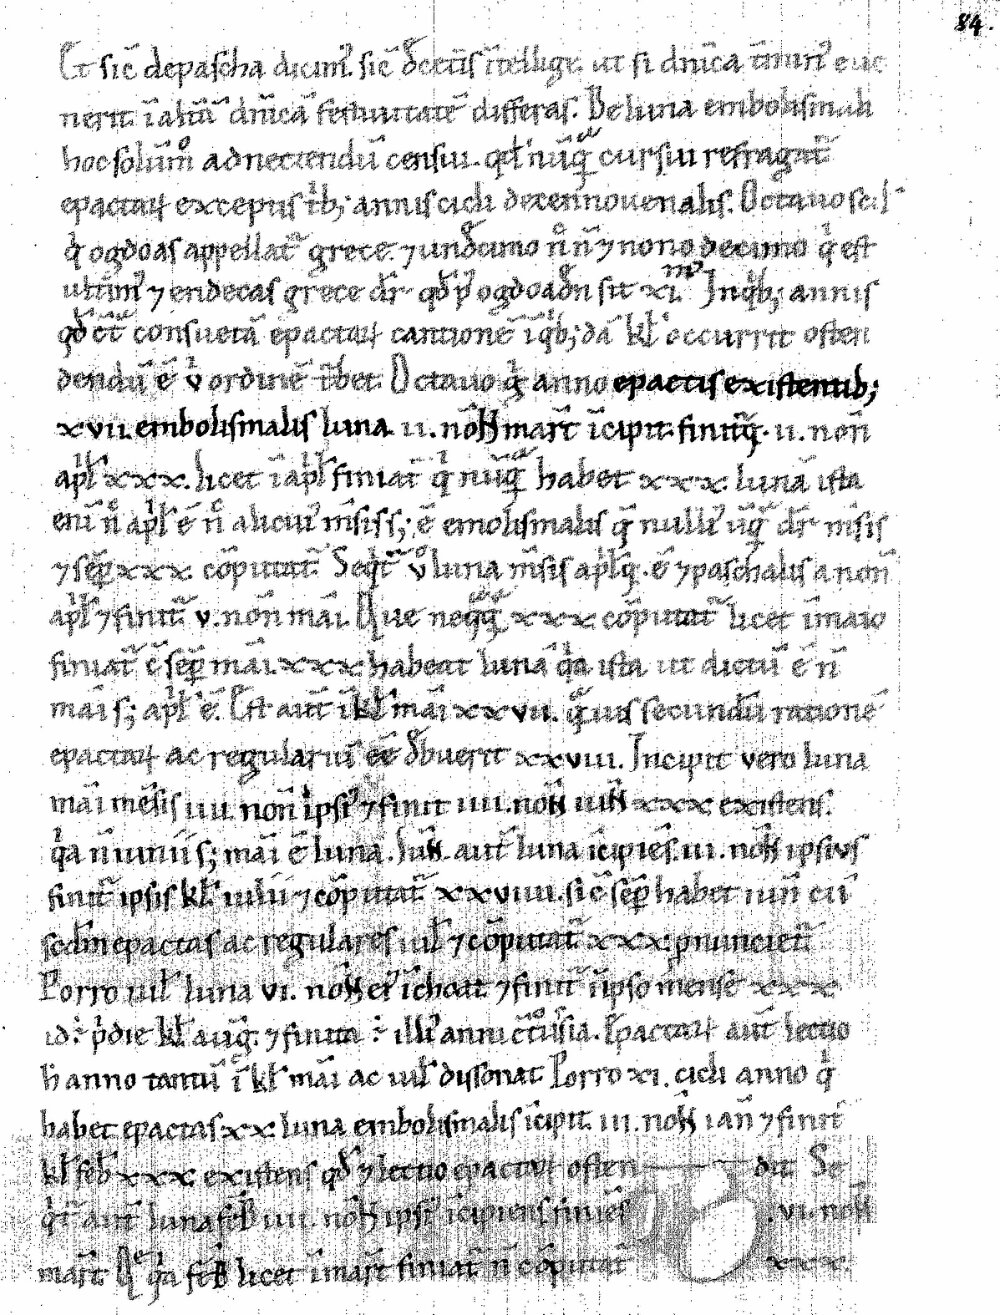 84.
Et sic̄ depascha dicim᷒ sic̄ d̄cet̄is īntellige. ut si dnīca t̄min᷒ eue
nerit. ī aliā dnīcā festiuitatē differas. De luna embolismali
hoc solūm̊ adnectendū censui. qd̄ nūq̄ cursiu refragat᷑
epactaꝝ exceptis tⁱb; annis cicli decennouenalis. Octauo scil
qⁱ ogdoas appellat᷑ grece. ⁊ undecimo n̊ n̄ ⁊ nono decimo qⁱ est
ultim᷒ ⁊ endecas grece dr̄ qd̄ p᷒ ogdoadēn sit xi.mus Inqⁱb; annis
qd̄ c̄t̄ consuetā epactaꝝ cantionē īqⁱb;dā kl̄ occurrit osten
dendū ē v̊ ordinē tⁱbet. Octauo gⁱ anno epactis existentib;
xvii. embolismalis luna ii. noꝶ mart̄ īcipit. finitq̄. ii. non̄
apl̄ xxx. licet ī apl̄ finiat᷑ qⁱ nūq̄ habet xxx. lunā ista
enī n̊ apl̄ ē n̊ alicui᷒ m̄sis s; ē emolismalis q̄ nulli᷒ ūq̄ dr̄ m̄sis
⁊ sēp xxx. cōputat᷑. Seqt᷑ v̊ luna m̄sis aplⁱq̄. ē ⁊ paschalis a non̄
apl̄ ⁊ finit᷑ v. non̄ māi. Que neq̄q̄ xxx. cōputat᷑ licet īmaio
finiat᷑ c̄ sēp māi. xxx habeat lunā qⁱa ista ut dictū ē n̄
māi s; apl̄ ē. Est aut̄ ī kl̄ māi xxvii. q̄uis secundū rationē
epactaꝝ ac regulariū eē d̄buerit xxviii. Incipit vero luna
māi mēsis iiii. non̄ ipsi᷒ ⁊ finit iiii. noꝶ iuꝶ xxx existens.
qⁱa n̄ iunii s; māi ē luna. Iuꝶ. aut̄ luna īcipiēs. iii. noꝶ ipsius
finit᷑ ipsis kl̄ iulii ⁊ cōputat᷑ xxviiii. sic̄ sēp habet iun̄ cū
scdm̄ epactas ac regulares iul̄ ⁊ cōputat᷑ xxx. pnunciet᷑
Porro iul̄ luna vi. noꝶ ei᷒ īchoat ⁊ finit᷑ īipso mense xxx
id÷ pⁱdie kl̄ auḡ. ⁊ finita ÷ illi᷒ anni c̄t̊uersia. Epactaꝝ aut̄ lectio
h̄ anno tantū ī kl̄ māi ac iul̄ dissonat Porro xi. cicli anno qⁱ
habet epactas xx. luna embolismalis īcipit. iii. noꝶ ian̄ ⁊ finit᷑
kl̄ feb̄ xxx. existens qd̄ ⁊ lectio epactaꝝ osten dit Se
qⁱt᷑ aut̄ luna feb̄ iiii. noꝶ ipsi᷒ īcipiens finiēs . vi. noꝶ
mart̄ Q̄ qⁱa feb̄ licet īmart̄ finiat᷑ n̄ cōputat᷑ xxx.